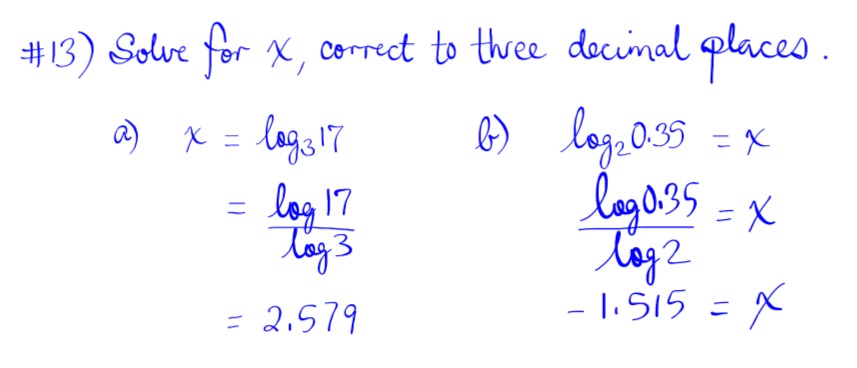 #13) Solve for x, correct to three decimal places.
a) x = log₃17
= log 17 / log 3
= 2.579
b) log₂0.35 = x
log 0.35 / log 2 = x
-1.515 = x